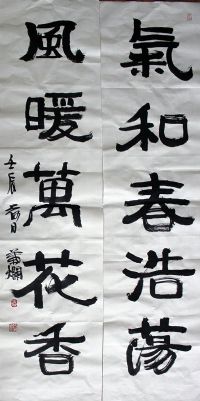 氣和春浩蕩
風暖萬花香
壬辰春月